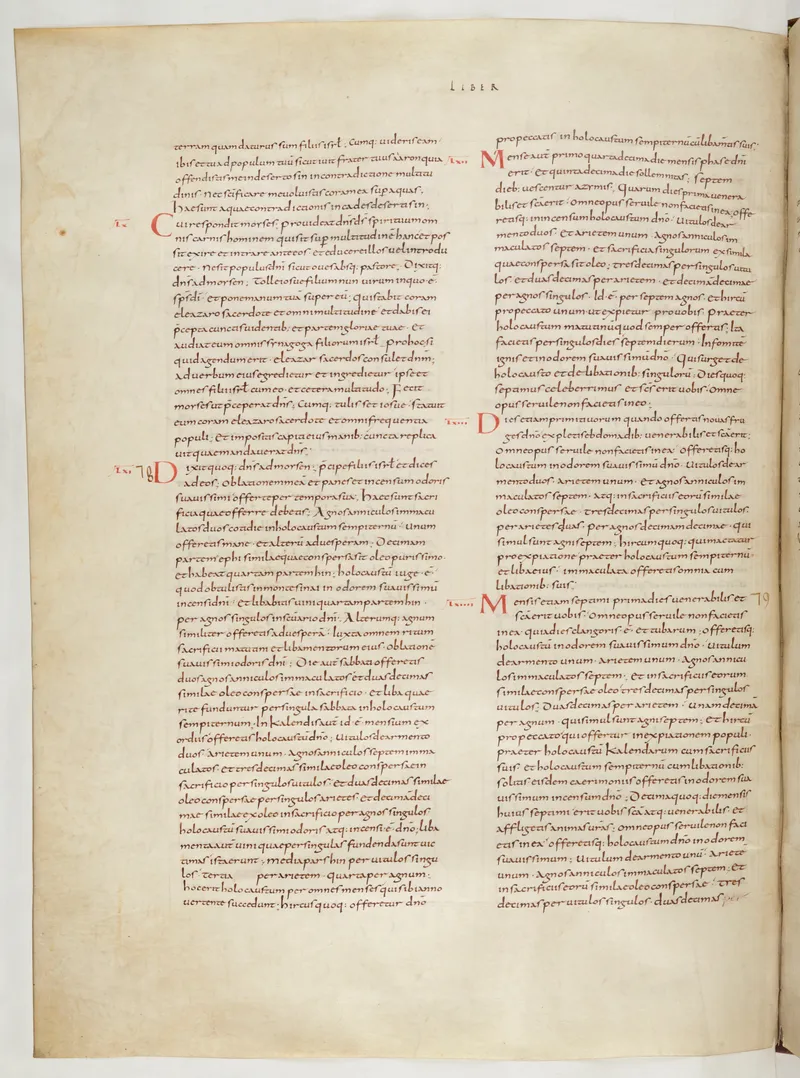 LIBER
terram quam daturus sum filiis isrl. Cumq: uideris eam
ibis et tu ad populum tuū sicut iuit frater tuus aaron quia
offendistis me in deserto sin in contradictione multitu
dinis. nec scificare me uoluistis coram ea sup aquas.
hae sunt aquae contradictionis in cades deserti sin;
Cui respondit moyses. prouideat dns ds spirituum om
nis carnis hominem qui sit sup multitudinē hanc et pos
sit exire et intrare ante eos. et educere illos uel introdu
cere. ne sit populus dni sicut oues absq: pastore; Dixitq:
dns ad moysen; Tolle iosue filium nun uirum in quo ē
sps di. et pone manum tuā super eū. qui stabit coram
eleazaro sacerdote et omni multitudine. et dabis ei
pcepta cunctis uidentib: et partem gloriae tuae. et
audiat eum omnis synagoga filiorum isrl. pro hoc si
quid agendum erit. eleazar sacerdos consulet dnm;
ad uerbum eius egredietur et ingredietur ipse et
omnes filii isrl cum eo. et cetera multitudo; Fecit
moyses ut pceperat dns; Cumq: tulisset iosue. statuit
eum coram eleazaro sacerdote et omni frequentia
populi; et impositis capiti eius manib: cuncta replica
uit quae mandauerat dns.
Dixit quoq: dns ad moysen; pcipe filiis isrl et dices
ad eos; Oblationem mea et panes et incensum odoris
suauissimi offerte per tempora sua; haec sunt sacri
ficia quae offerre debeas; Agnos anniculos immacu
latos duos cotidie in holocaustum sempiternū. Unum
offeretis mane. et alterū ad uesperam; Decimam
partem ephi similae quae conspersa sit oleo purissimo
et habeat quartam partem hin; holocaustū iuge ē
quod obtulistis in monte sinai in odorem suauissimū
incensi dni. et libabitis uini quartam partem hin.
per agnos singulos in sctuario dni. Alterumq: agnum
similiter offeretis ad uesperā. Iuxta omnem ritum
sacrificii matutini et libamentorum eius oblationē
suauissimi odoris dni; Die aut sabbati offeretis
duos agnos anniculos immaculatos et duas decimas
similae oleo conspersae in sacrificio. et liba quae
rite funduntur per singula sabbata in holocaustum
sempiternum. In kalendis aut id ē mensium ex
ordiis offeretis holocaustū dno; Uitulos de armento
duos. Arietem unum. Agnos anniculos septem imma
culatos. et tres decimas similae oleo conspersae in
sacrificio per singulos uitulos. et duas decimas similae
oleo conspersae per singulos arietes. et decimā deci
mae similae ex oleo in sacrificio per agnos singulos
holocaustū suauissimi odoris atq: incensi ē dno; liba
menta aut uini quae per singulas fundenda sunt uic
timas ista erunt; media pars hin per uitulos singu
los. tertia per arietem. quarta per agnum;
hoc erit holocaustum per omnes menses qui sibi anno
uertente succedunt; hircus quoq: offeretur dno
pro peccatis in holocaustum sempiternū cū libamtis suis.
Mense aut primo quarta decima die mensis phase dni
erit. et quinta decima die sollemnitas; septem
dieb: uescentur azymis. Quarum dies prima uenera
bilis et sca erit. Omne opus seruile non facietis in ea. offe
retisq: in incensum holocaustum dno. Uitulos de ar
mento duos. et arietem unum. Agnos anniculos im
maculatos septem. et sacrificia singulorum ex simila
quae conspersa sit oleo; tres decimas per singulos uitu
los. et duas decimas per arietem. et decimā decimae
per agnos singulos. Id ē per septem agnos. et hircū
pro peccato unum ut expietur pro uobis. Praeter
holocaustum matutinū quod semper offeretis. Ita
facietis per singulos dies septem dierum. In fomitē
ignis et in odorem suauissimū dno. Qui surget de
holocausto et de libationib: singulorū; Dies quoq:
septimus celeberrimus et scs erit uobis. Omne
opus seruile non facietis in eo;
Dies etiam primitiuorum quando offertis nouas fru
ges dno expletis ebdomadib: uenerabilis et sca erit;
Omne opus seruile non facietis in ea. offeretisq: ho
locaustum in odorem suauissimū dno. Uitulos de ar
mento duos. Arietem unum. et agnos anniculos im
maculatos septem. Atq: in sacrificiis eorū similae
oleo conspersae. tres decimas per singulos uitulos.
per arietes duas. per agnos decimam decimae. qui
simul sunt agni septem; hircum quoq: qui mactatur
pro expiatione praeter holocaustū sempiternū.
et liba eius. immaculata offeretis omnia cum
libationib: suis.
Mensis etiam septimi prima dies uenerabilis et
sca erit uobis. Omne opus seruile non facietis
in ea. quia dies clangoris ē et tubarum; offeretisq:
holocaustū in odorem suauissimum dno. Uitulum
de armento unum. Arietem unum. Agnos annicu
los immaculatos septem; et in sacrificiis eorum
similae conspersae oleo tres decimas per singulos
uitulos; Duas decimas per arietem. Unam decimā
per agnum. qui simul sunt agni septem; et hircū
pro peccato qui offertur in expiationem populi
praeter holocaustū kalendarum cum sacrificiis
suis. et holocaustum sempiternū cum libationib:
solitis; eisdem caerimoniis offeretis in odorem sua
uissimum incensum dno; Decima quoq: die mensis
huius septimi erit uobis sca atq: uenerabilis. et
affligetis animas uras; omne opus seruile non faci
etis in ea. offeretisq: holocaustū dno in odorem
suauissimum; Uitulum de armento unū. Arietē
unum. Agnos anniculos immaculatos septem; et
in sacrificiis eorū similae oleo conspersae. tres
decimas per uitulos singulos. duas decimas